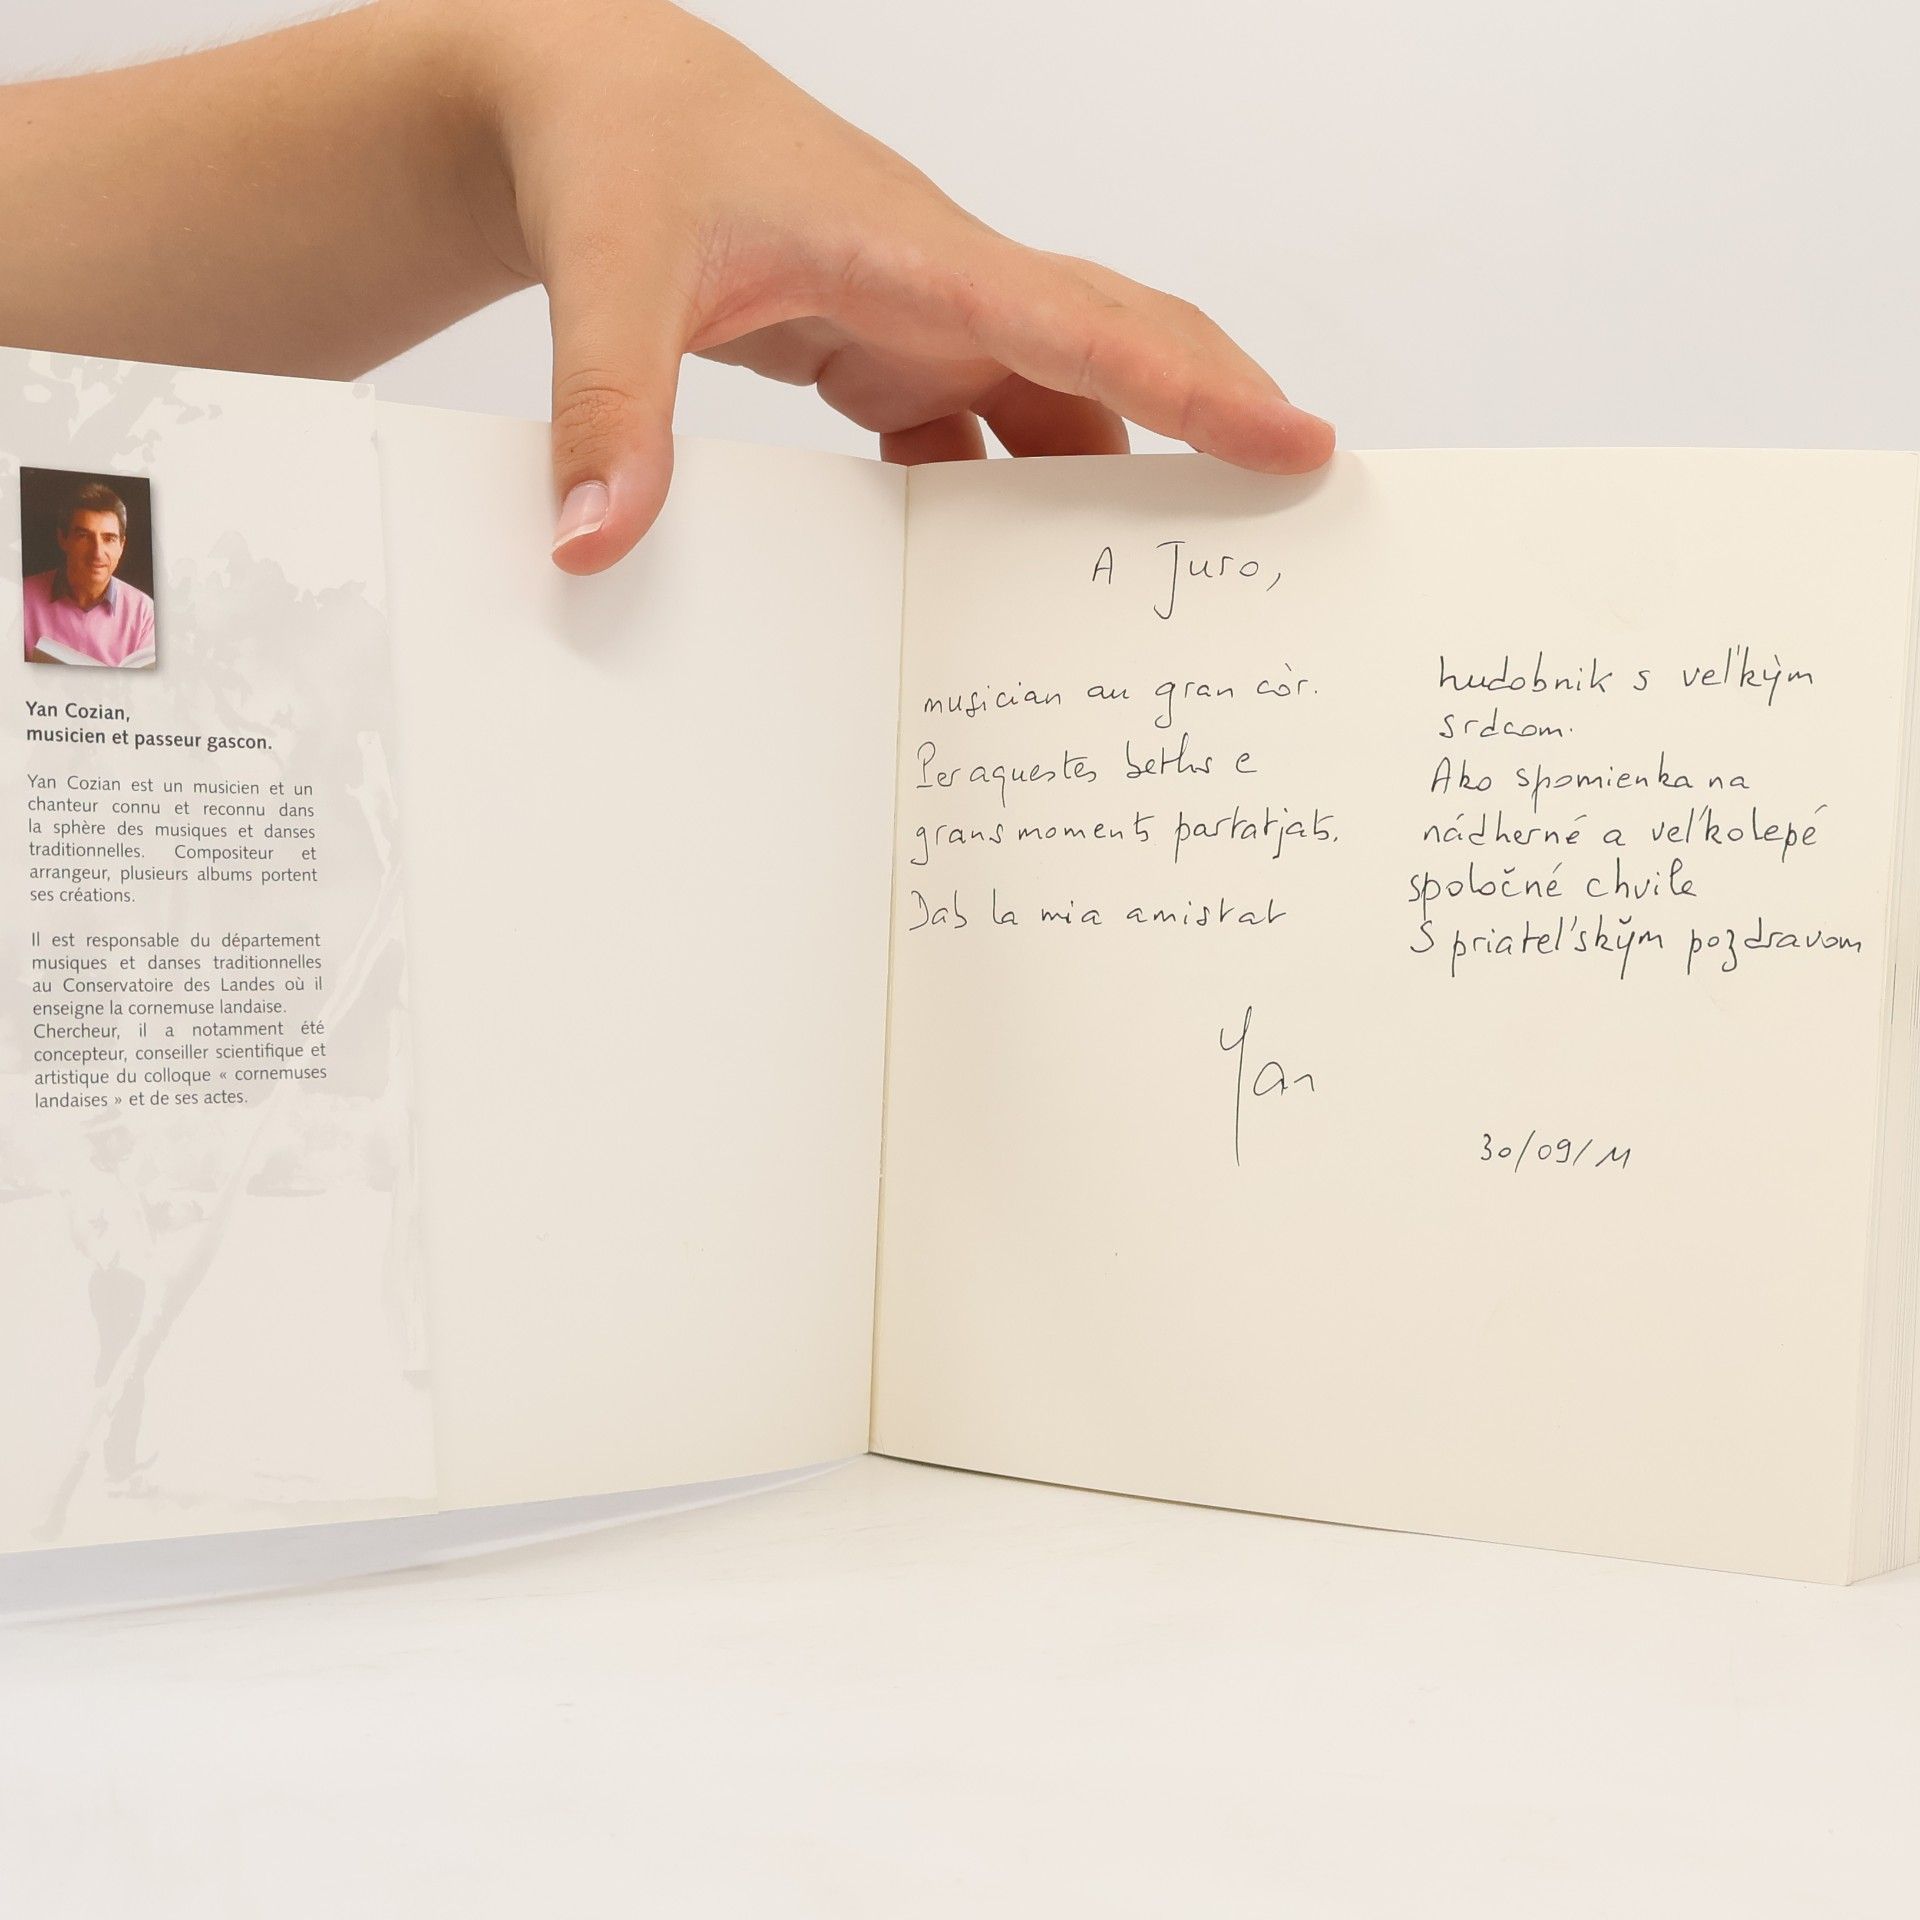 Yan Cozian,
musicien et passeur gascon.
Yan Cozian est un musicien et un
chanteur connu et reconnu dans
la sphère des musiques et danses
traditionnelles. Compositeur et
arrangeur, plusieurs albums portent
ses créations.
Il est responsable du département
musiques et danses traditionnelles
au Conservatoire des Landes où il
enseigne la cornemuse landaise.
Chercheur, il a notamment été
concepteur, conseiller scientifique et
artistique du colloque « cornemuses
landaises » et de ses actes.
A Juro,
musician au gran còr.
Per aquestes beths e
grans moments partatjats.
Dab la mia amistat
hudobnik s veľkým
srdcom.
Ako spomienka na
nádherné a veľkolepé
spoločné chvile
S priateľským pozdravom
Yan
30/09/11